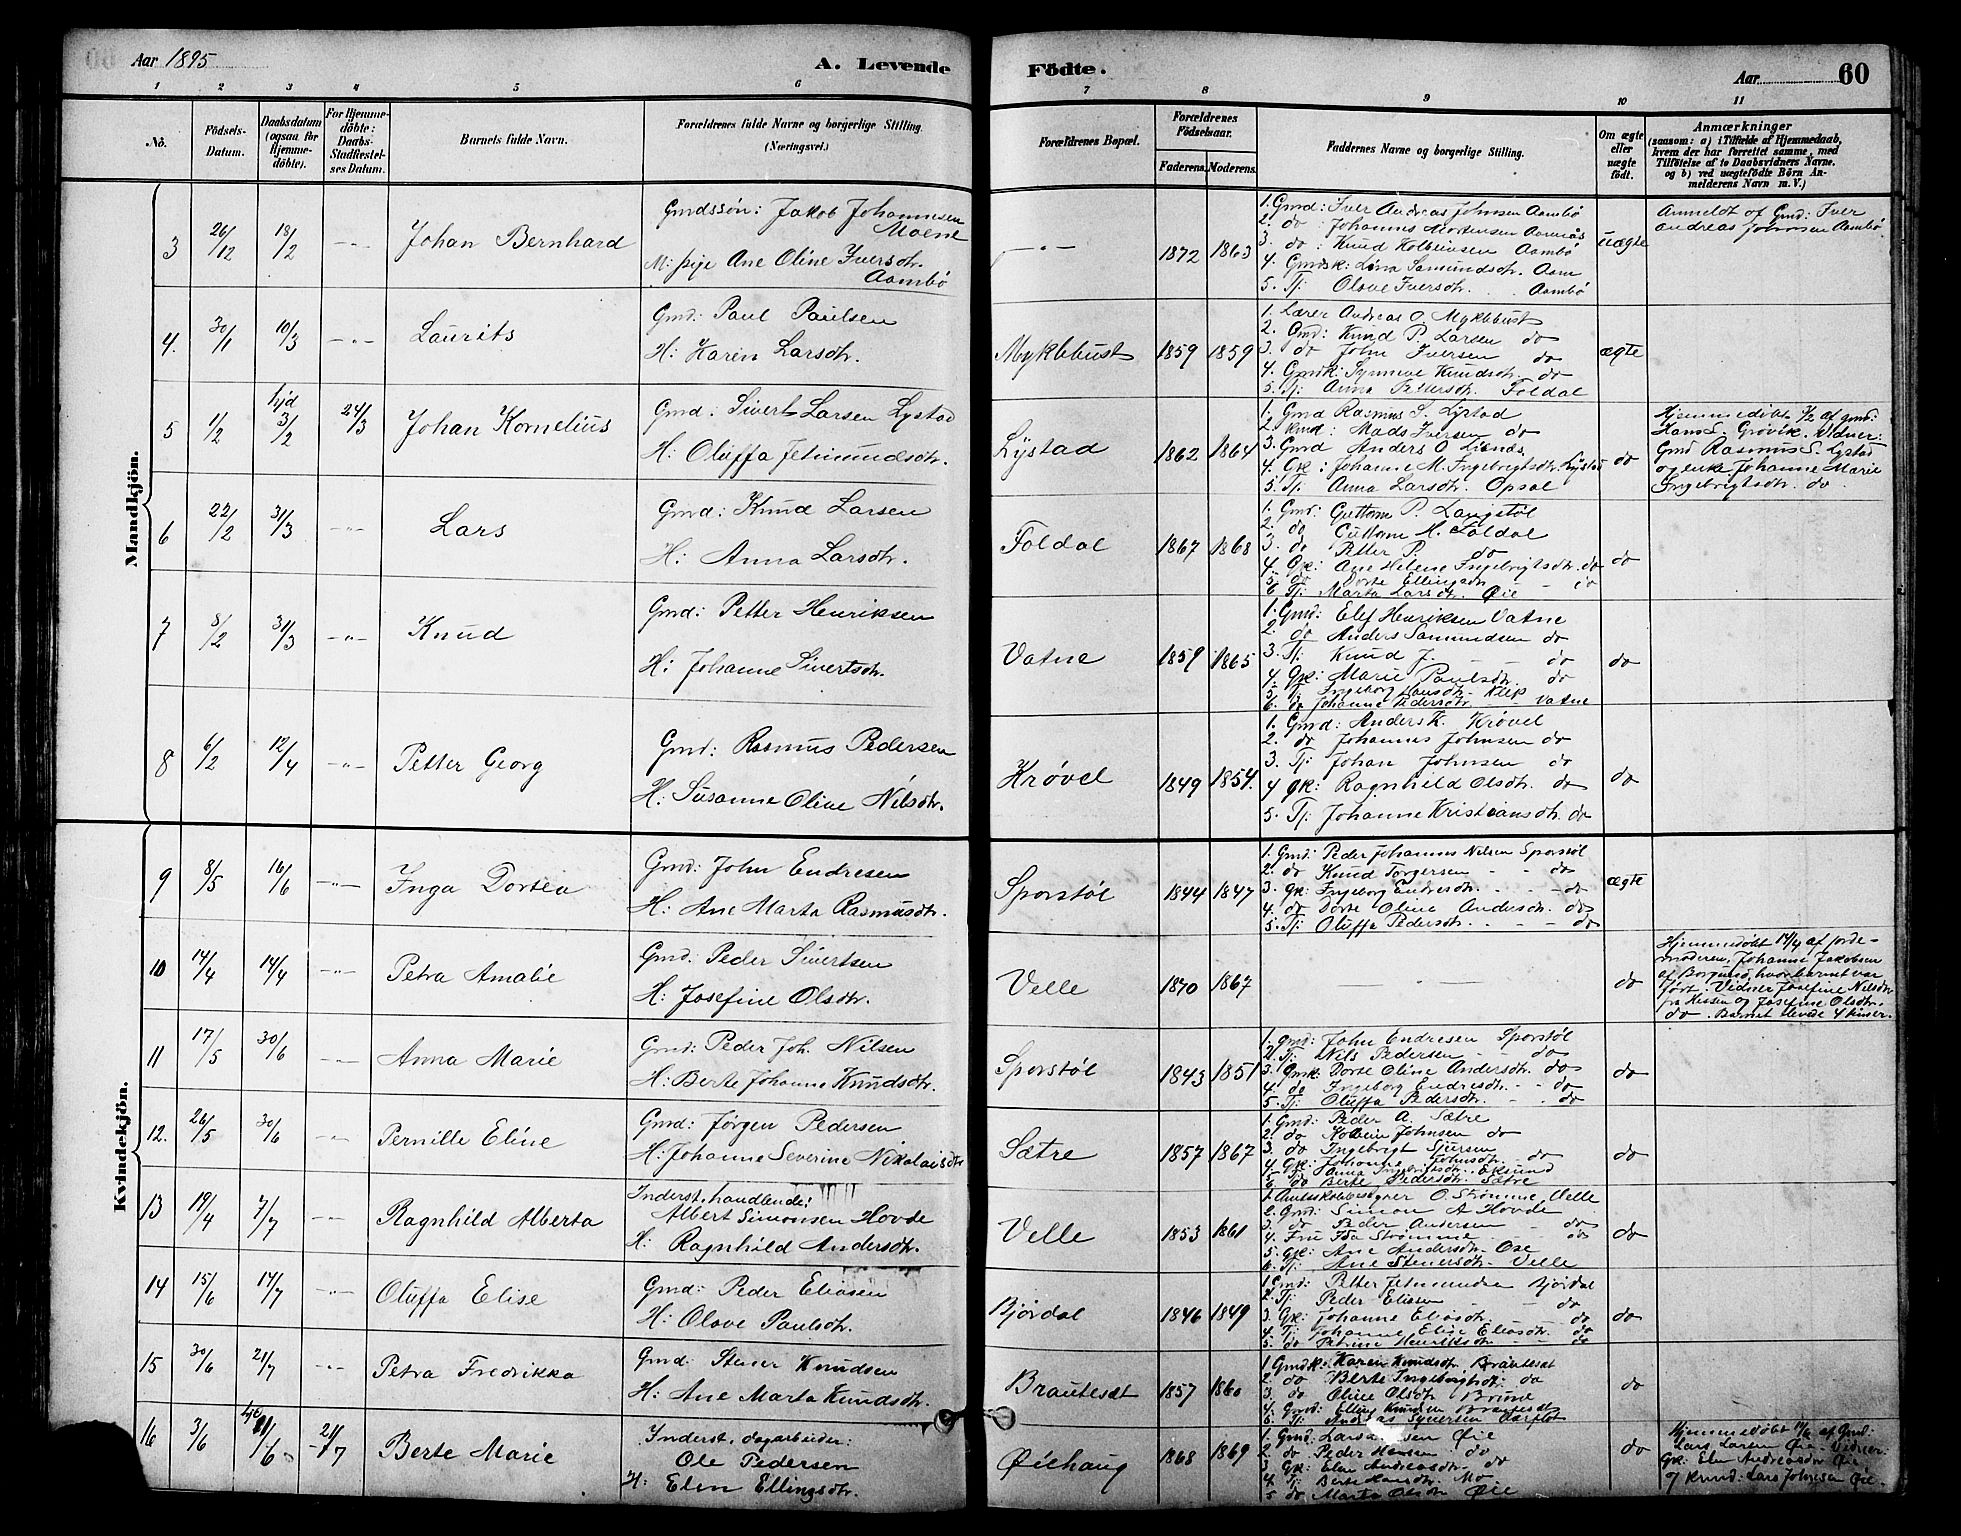 Aar 1895
A. Levende
Födte.
Aar 60
1 2 3 4 5 6 7 8 9 10 11
No.
Födsels-Datum.
Daabsdatum (ogsaa for Hjemme-döbte).
For Hjemme-döbte: Daabs-Stadfæstel-ses Datum.
Barnets fulde Navn.
Forældrenes fulde Navne og borgerlige Stilling. (Næringsvei.)
Forældrenes Bopæl.
Forældrenes Födselsaar.
Faderens. Moderens.
Faddernes Navne og borgerlige Stilling.
Om ægte eller uægte födt.
Anmærkninger
(saasom: a) i Tilfælde af Hjemmedaab, hvem der har forrettet samme, med Tilföielse af to Daabsvidners Navne. og b) ved uægtefödte Börn Anmelderens Navn m. V.)
Mandkjön.
3 26/12 18/2 -"- Johan Bernhard
Gmdssøn: Jakob Johannesen Moene
M: pige Ane Oline Iversdtr. Aambø
-"- 1872 1863
1. Gmd: Iver Andreas Johnsen Aambø
2. do Johannes Mortensen Aamnås
3. do: Knud Kolbeinsen Aambø
4. Gmdsk: Lina Samundsdtr. Aam
5. Tj: Olave Iversdtr. Aambø
uægte
Anmeldt af Gmd: Iver Andreas Johnsen Aambø
4. 30/1 10/3 -"- Laurits
Gmd: Paul Paulsen
H: Karen Larsdtr.
Myklebust 1859 1859
1. Lærer Andreas O. Myklebust
2. Gmd: Knud P. Larsen do
3. do John Iversen do
4. Gmdk: Synneve Knudsdtr. do
5. Tj: Anna Petersdtr. Foldal
ægte
5 1/2 hjd 3/2 24/3 Johan Kornelius
Gmd: Sivert Larsen Lystad
H: Oluffa Jetmundsdtr.
Lystad 1862 1864
1. Gmd Rasmus S. Lystad
2. Kmd: Mads Iversen do
3. Gmd Anders O. Lianes
4. Gk: Johanne M. Ingebrigtsdtr. Lystad
5. Tj: Anna Larsdtr. Opsal
do
Hjemmedøbt 3/2 af gmd:
Hans L. Grøvik. Vidner:
Gmd Rasmus S. Lystad
og enke Johanne Marie
Ingebrigtsdtr. do
6 22/2 31/3 -"- Lars
Gmd: Knud Larsen
H: Anna Larsdtr.
Foldal 1867 1868
1. Gmd: Guttorm P. Langstøl
2. do Guttorm M. Foldal
3. do Petter P. do
4. Gk: Ane Helene Ingebrigtsdtr. do
5. do Dorte Ellingsdtr - do
6. Tj: Marta Larsdtr. Øie
do
7 8/2 31/3 -"- Knud
Gmd: Petter Henriksen
H: Johanne Sivertsdtr.
Vatne 1859 1865
1. Gmd: Elef Henriksen Vatne
2. do Anders Samundsen do
3. Tj: Knud J. - - do
4. Gk: Marie Paulsdtr. do
5. Tj Ingeborg Hansdtr. Klep
6. do Johanne Pedersdtr - Vatne
do
8 6/2 12/4 -"- Petter Georg
Gmd: Rasmus Pedersen
H: Susanne Oline Nilsdtr.
Krøvel 1849 1854.
1. Gmd: Anders K. Krøvel
2. do Johannes Johnsen do
3. Tj: Johan Johnsen do
4 gk: Ragnhild Olsdtr. do
5. Tj: Johanne Kristiansdtr. do
do
Kvindekjön.
9 8/5 16/6 -"- Inga Dortea
Gmd: John Endresen
H: Ane Marta Rasmusdtr.
Sporstøl 1844 1847
1. Gmd: Peder Johannes Nilsen Sporstøl
2. do Knud Torgersen - - do
3. gk: Ingeborg Endresdtr. - - do
4. do Dorte Oline Andersdtr. do
5. Tj: Oluffa Pedersdtr. - - do
ægte
10 14/4 14/4 -"- Petra Amalie
Gmd: Peder Sivertsen
H: Josefine Olsdtr.
Velle 1870 1867 -"- do
Hjemmedøbt 14/4 af jorde-
moderen, Johanne Jakobsen
af Borgund, hvor barnet var
født. Vidner Josefine Nilsdtr
fra Hessen og Josefine Olsdtr.
do. Barnet levede 4 timer.
11 17/5 30/6 -"- Anna Marie
Gmd: Peder Joh. Nilsen
H: Berte Johanne Knudsdtr.
Sporstøl 1843 1851
1. gmd: John Endresen Sporstøl
2. Tj: Nils Pedersen - - do
3. Gmk: Dorte Oline Andersdtr. do
4. do Ingeborg Endresdtr. - - do
5. Tj: Oluffa Pedersdtr. - - do
do
12. 26/5 30/6 -"- Pernille Eline
Gmd: Jørgen Pedersen
H: Johanne Severine Nikolaisdtr
Sætre 1857 1867
1. Gmd: Peder A. Sætre
2. do Kolbein Johnsen do
3. do Ingebrigt Sjursen
4. Gk: Johanne Johnsdtr. - do
5. Tj: Anna Ingebrigtsdtr. Eksund
6. do Berte Pedersdtr. Sætre
do
13 19/4 7/7 -"- Ragnhild Alberta
Inderst, handlende:
Albert Simonsen Hovde
H: Ragnhild Andersdtr.
Velle 1853 1861
1. Amtsskolebestyrer O. Strømme, Velle
2. Gmd: Simon A Hovde
3. do Peder Andersen - do
4. Fru Ida Strømme - - do
5. gk: Ane Andersdtr. Ose
6. Tj: Ane Stenersdtr. Velle
do
14 15/6 14/7 -"- Oluffa Elise
Gmd: Peder Eliasen
H: Olave Paulsdtr.
Bjørdal 1846 1849
1. Gmd: Petter Jetmundsen Bjørdal
2. Tj: Peder Eliasen - do
3. Gk: Johanne Eliasdtr. - do
4. Tj: Johanne Elise Eliasdtr. do
5. do Petrine Henriksdtr - do
do
15 30/6 21/7 -"- Petra Fredrikka
Gmd: Stener Knudsen
H: Ane Marta Knudsdtr.
Brautesæt 1857 1860
1 Gmdk: Karen Knudsdtr. Brautesæt
2. do Berte Ingeborgsdtr: do
3. do Oline Olsdtr Brune
4. Gmd: Elling Knudsen Brautesæt
5. Tj: Andreas Synersen Aarflot
do
16 3/6 hjd 21/7 Berte Marie
Inderst, dagarbeider:
Ole Pedersen
H: Elen Ellingsdtr.
Øiehaug 1868 1869
1. Gmd: Lars Larsen Øie
2. do Peder Hansen - do
3 Gk: Elen Andreasdtr. do
4. Tj: Berte Hansdtr. Mo
5. do Marta Olsdtr Øie
do
Hjemmedøbt af Gmd:
Lars Larsen Øie. Vidner:
Gk: Elen Andreasdtr Øie
og Kmd: Lars Johnsen Øie.